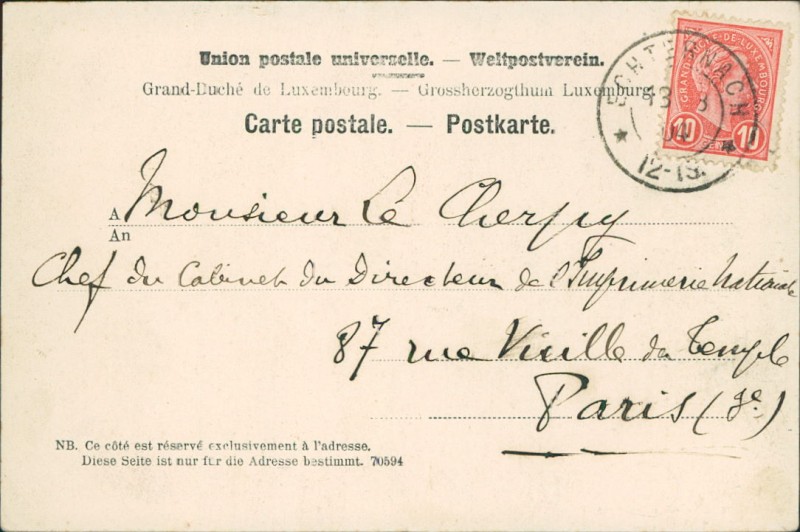 Union postale universelle. — Weltpostverein.
Grand-Duché de Luxembourg. — Grossherzogthum Luxemburg.
Carte postale. — Postkarte.
GRAND-DUCHE-DE-LUXEMBOURG
10 10
ECHTERNACH
12-1S.
A Monsieur Le Cherpy
An
Chef du Cabinet du Directeur de l'Imprimerie Nationale
87 rue Vieille du Temple
Paris (3e.)
NB. Ce côté est réservé exclusivement à l'adresse.
Diese Seite ist nur für die Adresse bestimmt. 70594